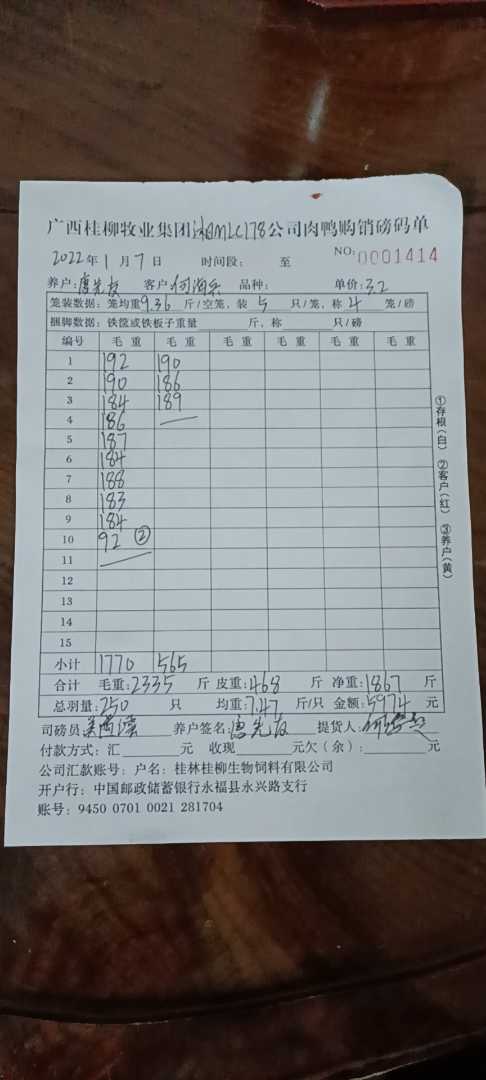 广西桂柳牧业集团湘DM2C178公司肉鸭购销磅码单
2022年1月7日 时间段: 至 NO:0001414
养户: 客户:何海兵 品种: 单价:3.2
笼装数据: 笼均重9.36斤/空笼, 装5只/笼, 称4笼/磅
捆脚数据: 铁筐或铁板子重量 斤, 称 只/磅
编号 毛重 毛重 毛重 毛重 毛重 毛重
1 192 190
2 190 186
3 184 189
4 186
5 187
6 184
7 188
8 183
9 184
10 92 ②
11
12
13
14
15
小计 1770 565
合计 毛重:2335斤 皮重:468斤 净重:1867斤
总羽量:250只 均重:7.47斤/只 金额:5974元
司磅员 养户签名: 提货人:
付款方式: 汇 元 收现 元欠(余): 元
公司汇款账号: 户名: 桂林桂柳生物饲料有限公司
开户行: 中国邮政储蓄银行永福县永兴路支行
账号: 9450 0701 0021 281704
①存根(白) ②客户(红) ③养户(黄)